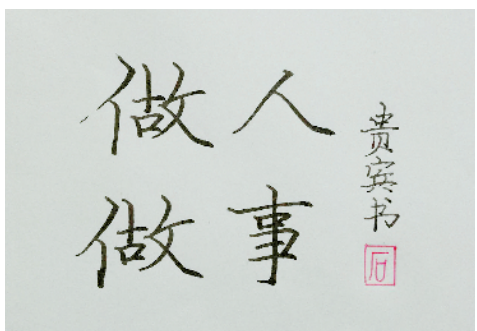 做人
做事
贵宾书
石